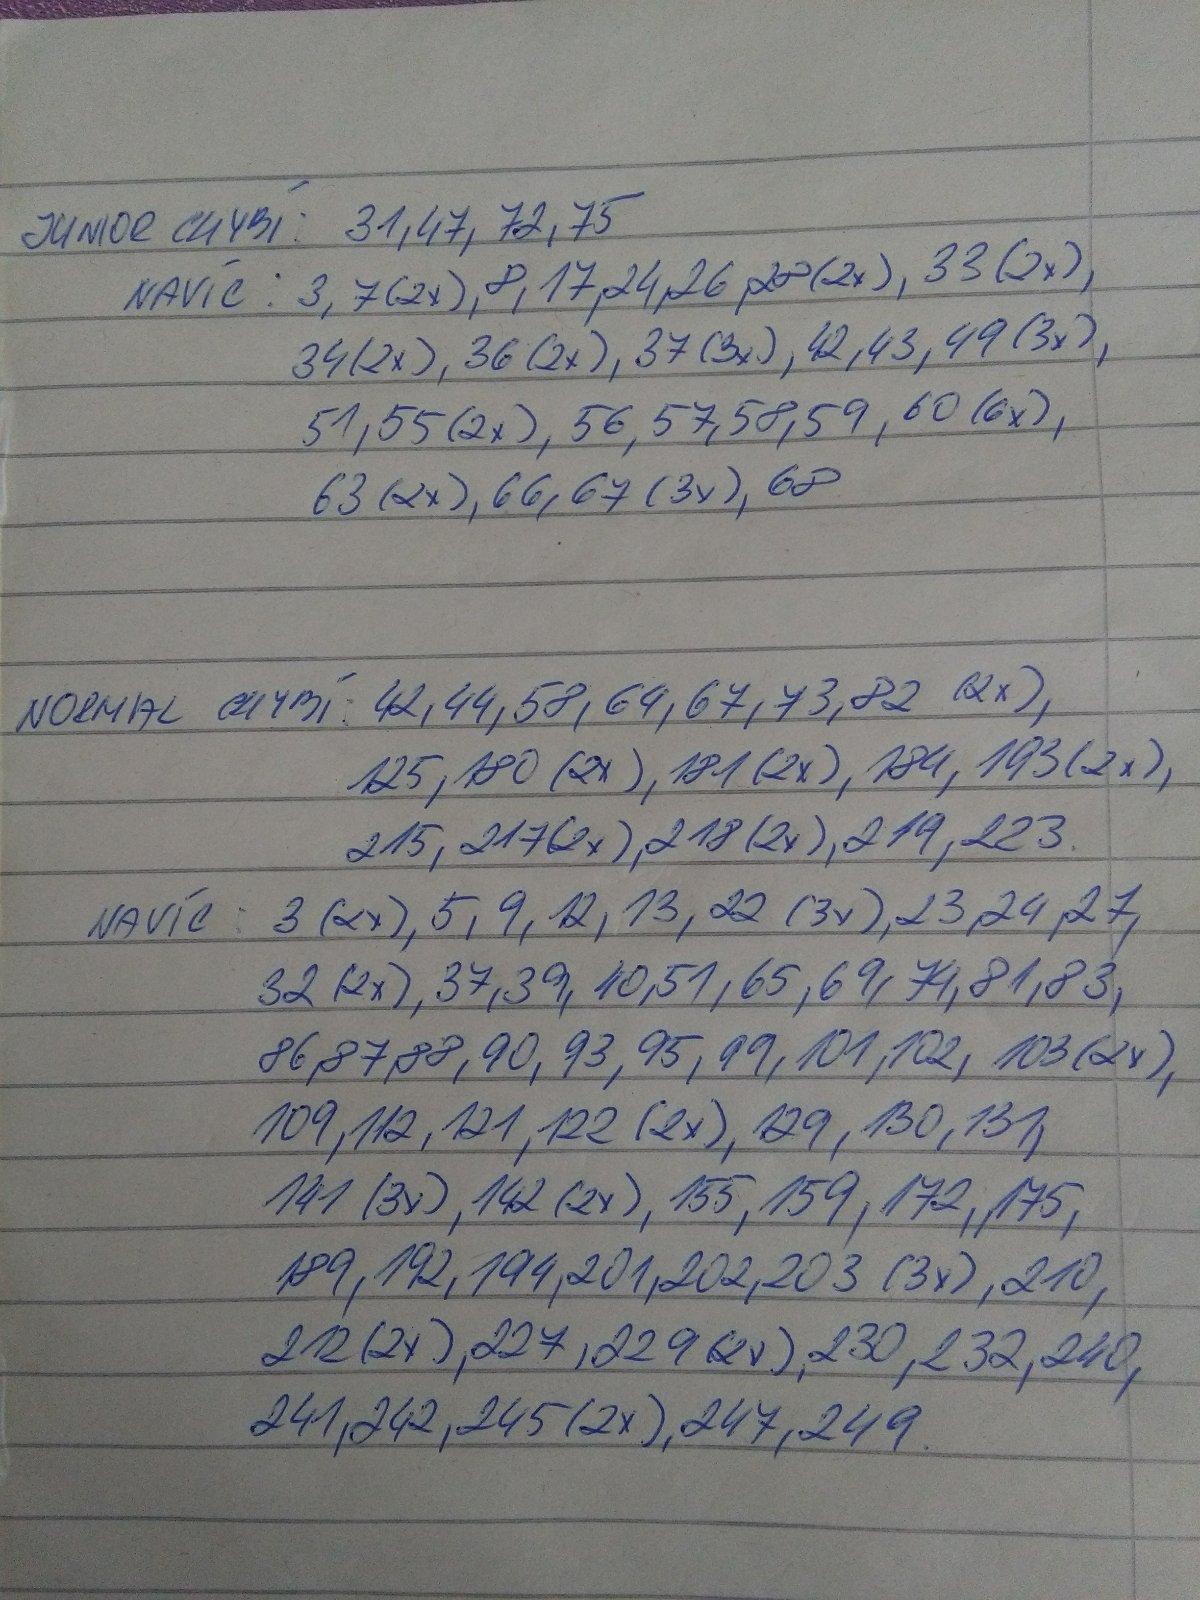 JUNIOR CHYBÍ: 31, 47, 72, 75
NAVÍC: 3, 7(2x), 8, 17, 24, 26, 28(2x), 33(2x),
34(2x), 36(2x), 37(3x), 42, 43, 49(3x),
51, 55(2x), 56, 57, 58, 59, 60(6x),
63(2x), 66, 67(3x), 68
NORMAL CHYBÍ: 42, 44, 58, 64, 67, 73, 82 (2x),
125, 180 (2x), 181(2x), 184, 193(2x),
215, 217(2x), 218(2x), 219, 223.
NAVÍC: 3(2x), 5, 9, 12, 13, 22 (3x), 23, 24, 27,
32(2x), 37, 39, 40, 51, 65, 69, 74, 81, 83,
86, 87, 88, 90, 93, 95, 99, 101, 102, 103(2x),
109, 112, 121, 122(2x), 129, 130, 131,
141 (3x), 142(2x), 155, 159, 172, 175,
189, 192, 194, 201, 202, 203 (3x), 210,
212(2x), 227, 229(2x), 230, 232, 240,
241, 242, 245(2x), 247, 249.